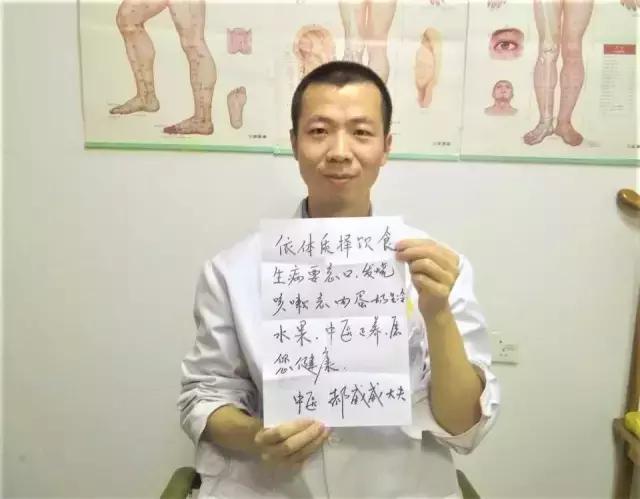 依体质择饮食
生病要忌口.发烧
咳嗽忌肉蛋奶生冷
水果.中医正养.愿
您健康.
中医 郝威威大夫